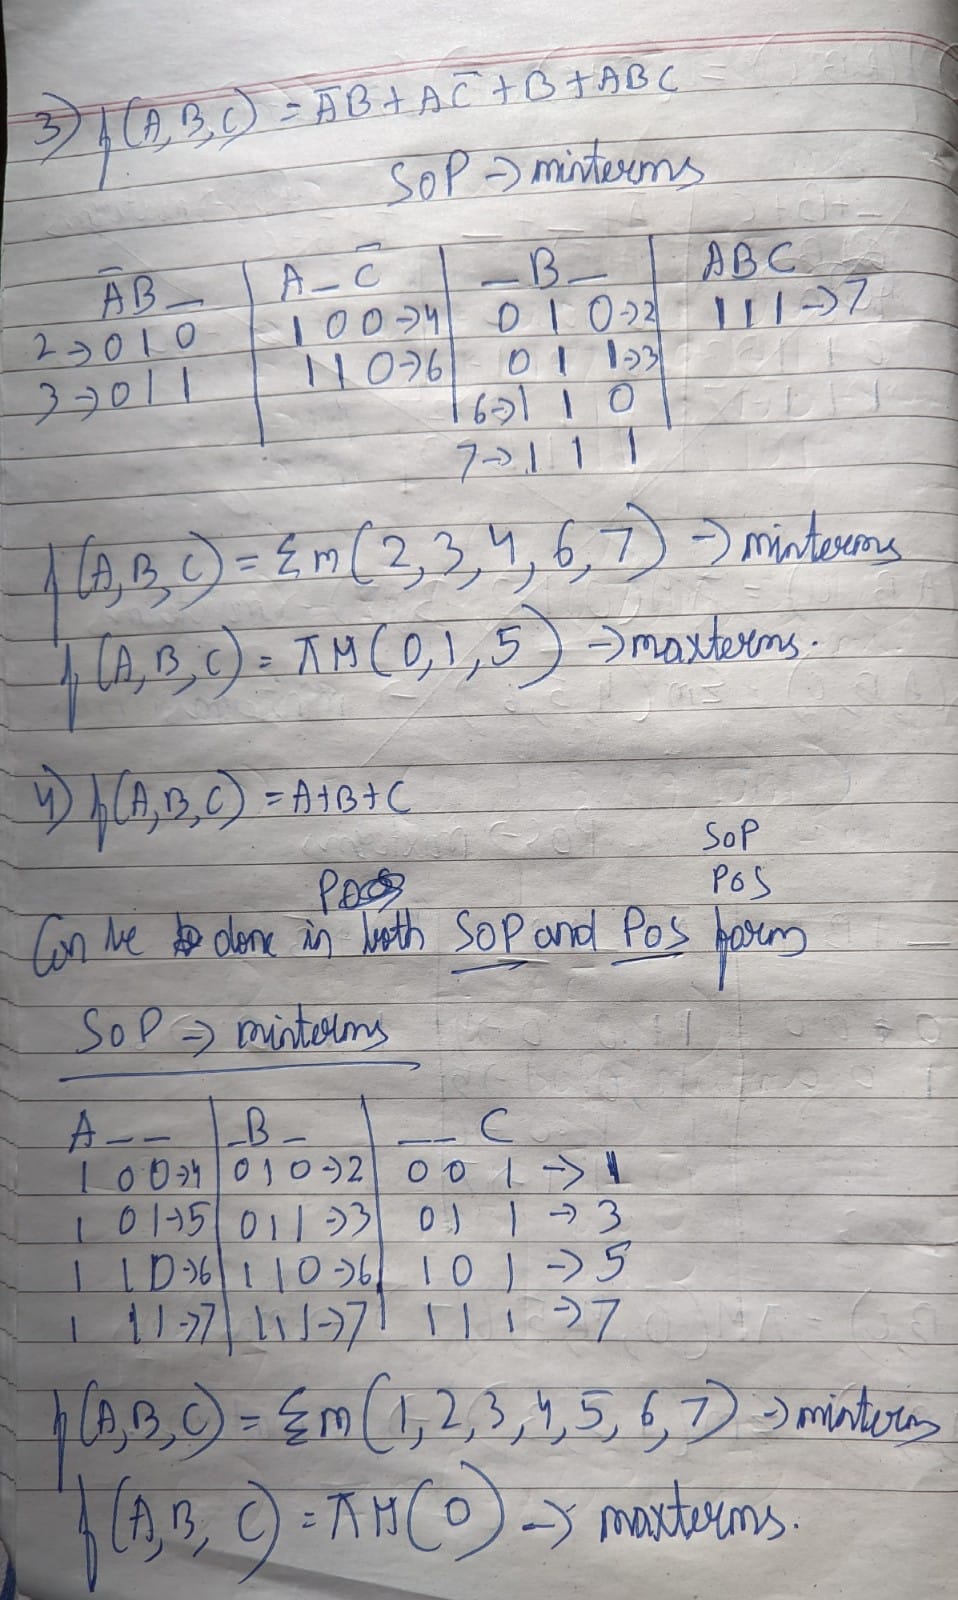 3) f(A,B,C) = A̅B + AC̅ + B + ABC
SOP → minterms
A̅B_ | A_C̅ | _B_ | ABC
2→010 | 100→4 | 010→2 | 111→7
3→011 | 110→6 | 011→3
6→110
7→111
f(A,B,C) = Σm(2,3,4,6,7) → minterms
f(A,B,C) = πM(0,1,5) → maxterms.
4) f(A,B,C) = A+B+C
SOP
POS
Can be done in both SOP and POS form
SOP → minterms
A__ | _B_ | __C
100→4 | 010→2 | 001→1
101→5 | 011→3 | 011→3
110→6 | 110→6 | 101→5
111→7 | 111→7 | 111→7
f(A,B,C) = Σm(1,2,3,4,5,6,7) → minterm
f(A,B,C) = πM(0) → maxterms.